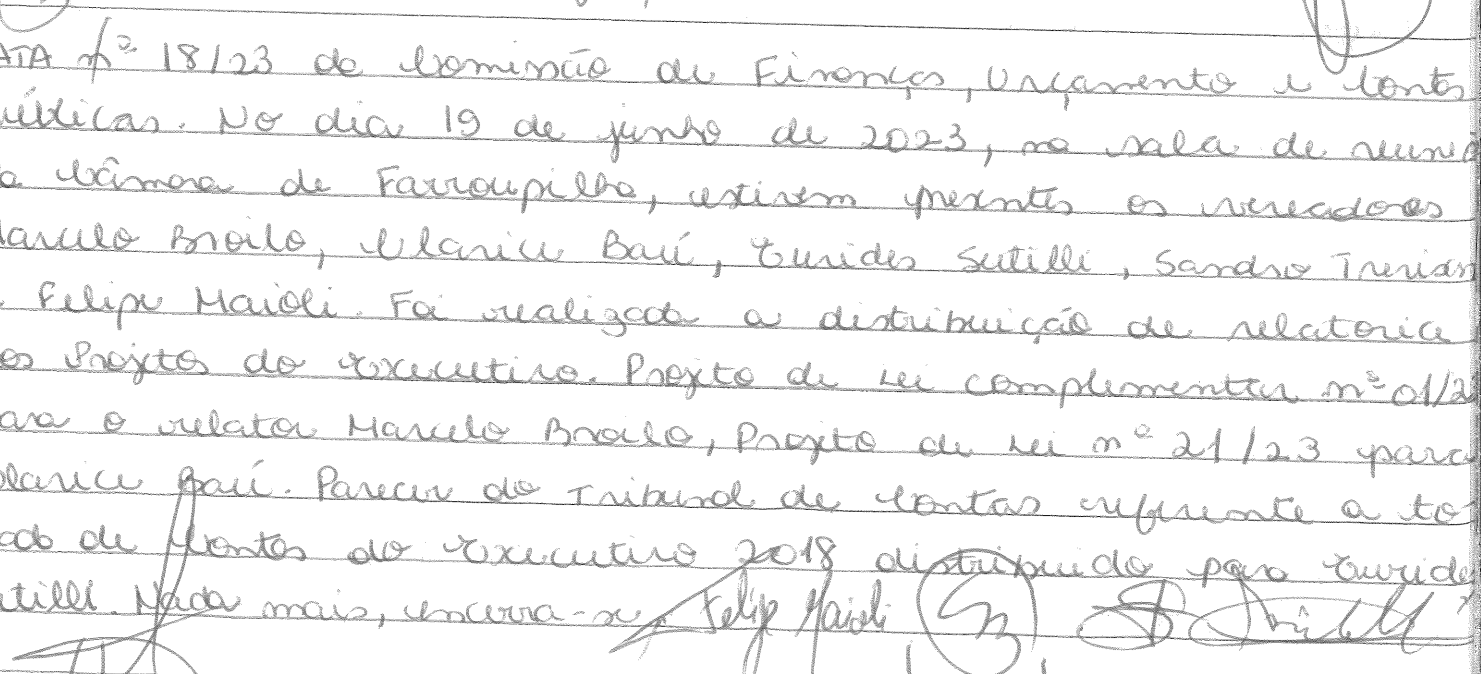 ATA nº 18/23 da Comissão de Finanças, Orçamento e Contas
úblicas. No dia 19 de junho de 2023, na sala de reuni
a Câmara de Farroupilha, estiveram presentes os vereadores
arcelo Broilo, Clarice Baú, Eurides Sutilli, Sandro Trevisan
Felipe Maioli. Foi realizada a distribuição de relatoria
os Projetos do executivo. Projeto de Lei complementar nº 01/2
ara o relator Marcelo Broilo, Projeto de Lei nº 21/23 para
larice Baú. Parecer do Tribunal de Contas referente a to
ada de Contas do executivo 2018 distribuido para Euride
tilli. Nada mais, encerra-se Felipe Maioli